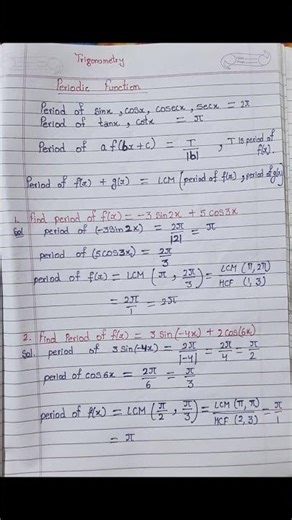 Trigonometry
Periodic Function
Period of sinx, cosx, cosecx, secx = 2π
Period of tanx, cotx = π
Period of a f(bx+c) = T/|b| , T is period of f(x).
Period of f(x) + g(x) = LCM (period of f(x), period of g(x))
1. Find period of f(x) = -3 sin2x + 5 cos3x
Sol period of (-3 sin 2x) = 2π/|2| = π
period of (5 cos3x) = 2π/3
period of f(x) = LCM (π, 2π/3) = LCM (π, 2π)/HCF (1, 3)
= 2π/1 = 2π
2. Find Period of f(x) = 3 sin(-4x) + 2 cos(6x)
Sol. period of 3 sin(-4x) = 2π/|-4| = 2π/4 = π/2
period of cos6x = 2π/6 = π/3
period of f(x) = LCM (π/2, π/3) = LCM (π, π)/HCF (2, 3) = π/1
= π